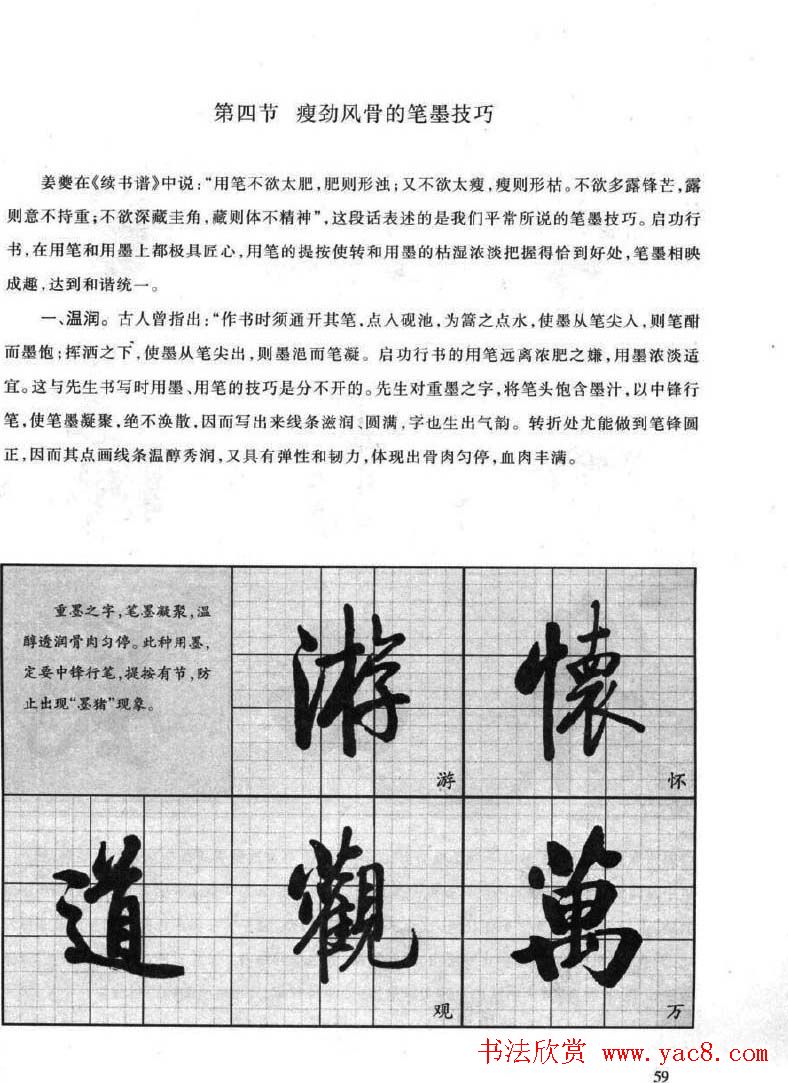 第四节 瘦劲风骨的笔墨技巧
姜夔在《续书谱》中说：“用笔不欲太肥，肥则形浊；又不欲太瘦，瘦则形枯。不欲多露锋芒，露
则意不持重；不欲深藏圭角，藏则体不精神”，这段话表述的是我们平常所说的笔墨技巧。启功行
书，在用笔和用墨上都极具匠心，用笔的提按使转和用墨的枯湿浓淡把握得恰到好处，笔墨相映
成趣，达到和谐统一。
一、温润。古人曾指出：“作书时须通开其笔，点入砚池，为篙之点水，使墨从笔尖入，则笔酣
而墨饱；挥洒之下，使墨从笔尖出，则墨浥而笔凝。启功行书的用笔远离浓肥之嫌，用墨浓淡适
宜。这与先生书写时用墨、用笔的技巧是分不开的。先生对重墨之字，将笔头饱含墨汁，以中锋行
笔，使笔墨凝聚，绝不涣散，因而写出来线条滋润、圆满，字也生出气韵。转折处尤能做到笔锋圆
正，因而其点画线条温醇秀润，又具有弹性和韧力，体现出骨肉匀停，血肉丰满。
重墨之字，笔墨凝聚，温
醇透润骨肉匀停。此种用墨，
定要中锋行笔，提按有节，防
止出现“墨猪”现象。
游 懷
游 怀
道 觀 萬
观 万
书法欣赏 www.yac8.com
59